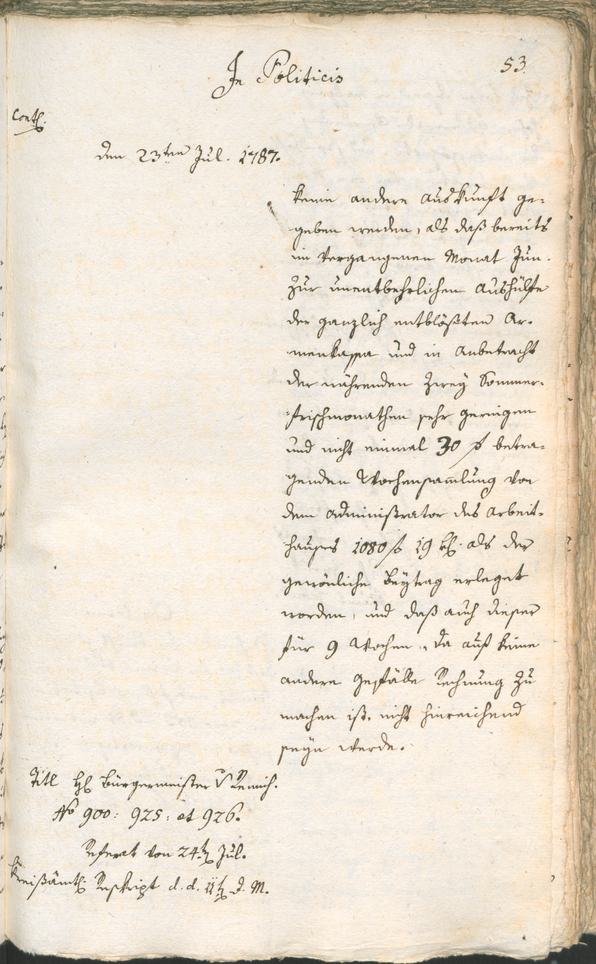 In Politicis
53.
Cont.
den 23ten Jul. 1787.
keine andere Auskunft ge-
geben werden, als daß bereits
im vergangenen Monat Jun.
zur unentbehrlichen Aushülfe
der gänzlich entblößten Ar-
menkassa und in Anbetracht
der währenden zwey Sommer-
frischmonathen sehr geringen
und nicht einmal 30 f betra-
genden Wochensamlung von
dem Administrator des Arbeit-
hauses 1080 f 19 kr. als der
gewönliche Beytrag erleget
worden, und daß auch dieser
für 9 Wochen, da auf keine
andere Gefälle Rechnung zu
machen ist, nicht hinreichend
seyn werde.
Titl H. Bürgermeister v
No 900: 925: et 926.
Referat von 24t. Jul.
Kreißämtl. Reskript d. d. d. M.